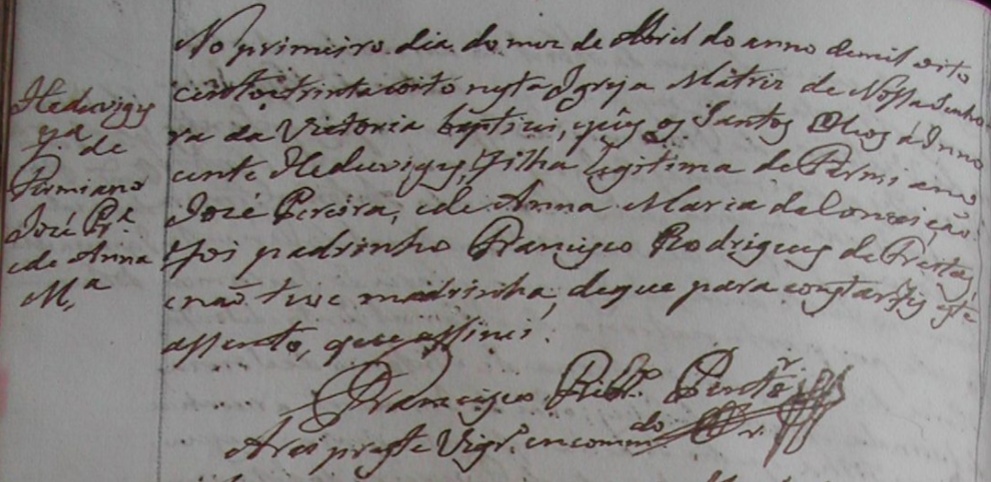 Heduvigis
fa. de
Firmiano
José Pra.
e de Anna
Ma.
No primeiro dia do mez de Abril do anno de mil oito
centos e trinta e oito nesta Igreja Matriz de Nossa Senho-
ra da Victoria baptizei, e puz os Santos Oleos á Inno
cente Heduviges, Filha legitima de Firmi ano
José Pereira, e de Anna Maria da Conceição.
Foi padrinho Francisco Rodrigues de Freitas,
e naõ teve madrinha, de que para constar fiz este
assento, que assinei.
Francisco Ribro.
Arcipreste Vigro. encommdo